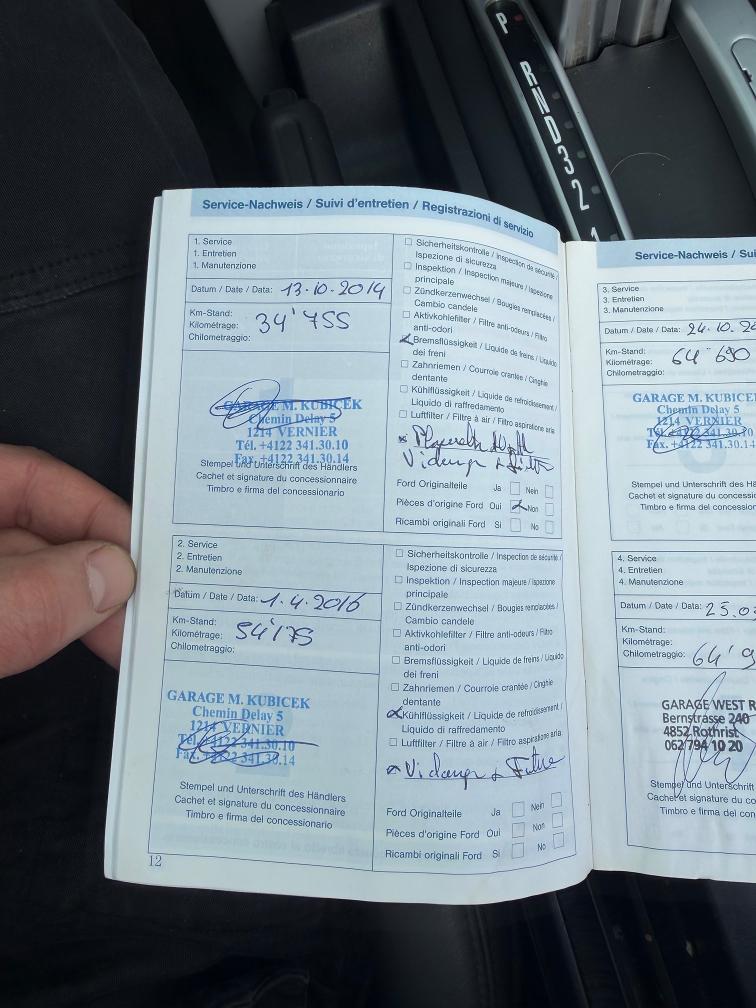 P
R
N
D
3
2
1
Service-Nachweis / Suivi d'entretien / Registrazioni di servizio
1. Service
1. Entretien
1. Manutenzione
Datum / Date / Data: 13.10.2014
Km-Stand:
Kilométrage: 34'755
Chilometraggio:
GARAGE M. KUBICEK
Chemin Delay 5
1214 VERNIER
Tél. +4122 341.30.10
Fax. +4122 341.30.14
Stempel und Unterschrift des Händlers
Cachet et signature du concessionnaire
Timbro e firma del concessionario
Sicherheitskontrolle / Inspection de sécurité /
Ispezione di sicurezza
Inspektion / Inspection majeure / Ispezione
principale
Zündkerzenwechsel / Bougies remplacées /
Cambio candele
Aktivkohlefilter / Filtre anti-odeurs / Filtro
anti-odori
x Bremsflüssigkeit / Liquide de freins / Liquido
dei freni
Zahnriemen / Courroie crantée / Cinghie
dentante
Kühlflüssigkeit / Liquide de refroidissement /
Liquido di raffredamento
Luftfilter / Filtre à air / Filtro aspiratione aria
Vidange + Filtre
Ford Originalteile Ja Nein
Pièces d'origine Ford Oui x Non
Ricambi originali Ford Si No
2. Service
2. Entretien
2. Manutenzione
Datum / Date / Data: 1.4.2016
Km-Stand:
Kilométrage: 54'175
Chilometraggio:
GARAGE M. KUBICEK
Chemin Delay 5
1214 VERNIER
Tél. +4122 341.30.10
Fax. +4122 341.30.14
Stempel und Unterschrift des Händlers
Cachet et signature du concessionnaire
Timbro e firma del concessionario
Sicherheitskontrolle / Inspection de sécurité /
Ispezione di sicurezza
Inspektion / Inspection majeure / Ispezione
principale
Zündkerzenwechsel / Bougies remplacées /
Cambio candele
Aktivkohlefilter / Filtre anti-odeurs / Filtro
anti-odori
Bremsflüssigkeit / Liquide de freins / Liquido
dei freni
Zahnriemen / Courroie crantée / Cinghie
dentante
x Kühlflüssigkeit / Liquide de refroidissement /
Liquido di raffredamento
Luftfilter / Filtre à air / Filtro aspiratione aria
x Vidange + Filtre
Ford Originalteile Ja Nein
Pièces d'origine Ford Oui Non
Ricambi originali Ford Si No
12
Service-Nachweis / Sui
3. Service
3. Entretien
3. Manutenzione
Datum / Date / Data: 24.10.20
Km-Stand:
Kilométrage: 64'690
Chilometraggio:
GARAGE M. KUBICEK
Chemin Delay 5
1214 VERNIER
Tél. +4122 341.30.10
Fax. +4122 341.30.14
Stempel und Unterschrift des Hä
Cachet et signature du concess
Timbro e firma del conces
4. Service
4. Entretien
4. Manutenzione
Datum / Date / Data: 25.0
Km-Stand:
Kilométrage:
Chilometraggio: 64'9
GARAGE WEST R
Bernstrasse 240
4852 Rothrist
062 794 10 20
Stempel und Unterschrift des
Cachet et signature du co
Timbro e firma del con